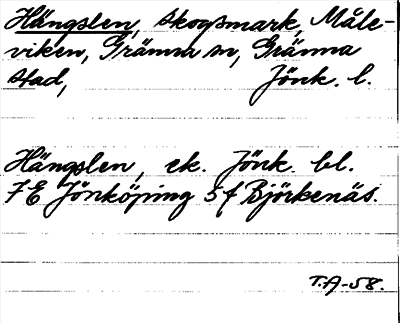 Hängslen, skogsmark, Måle-
viken, Gränna sn, Gränna
stad, Jönk. l.
Hängslen, ek. Jönk. bl.
7E Jönköping 5f Björkenäs.
T.A-58.